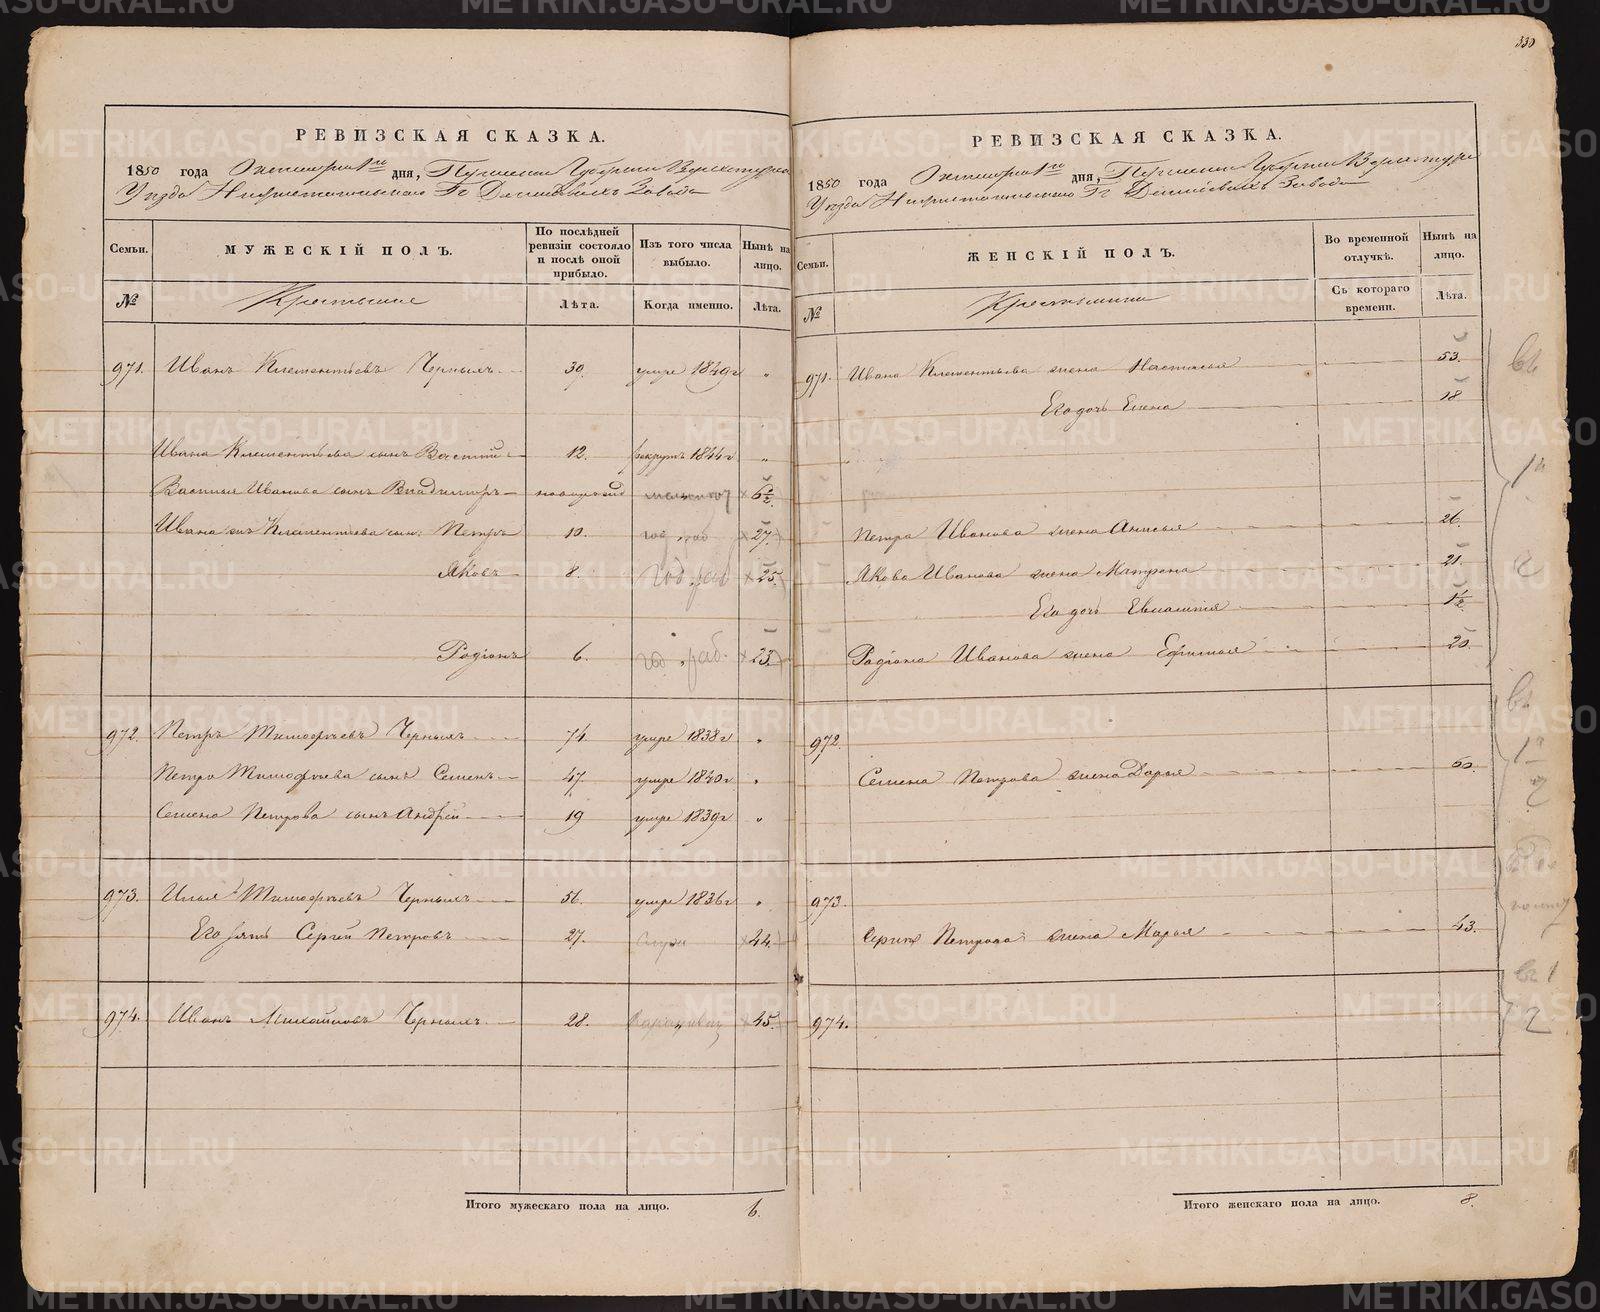 330
РЕВИЗСКАЯ СКАЗКА.
1850 года Октября 1го дня, Пермской Губернии Верхотурскаго
Уѣзда Нижнетагильскаго Гг Демидовыхъ Завода
Семьи. МУЖЕСКІЙ ПОЛЪ. По послѣдней ревизіи состояло и послѣ оной прибыло. Изъ того числа выбыло. Нынѣ на лицо.
№ Крестьяне Лѣта. Когда именно. Лѣта.
971. Иванъ Клементьевъ Черныхъ 39. умре 1849г "
Ивана Клементьева сынъ Василій 12. рекрутъ 1844г "
Василья Иванова сынъ Владимиръ новорожд 6½.
Ивана Клементьева сын. Петръ 10. год. раб 27.
Яковъ 8. год. раб 25.
Родіонъ 6. год. раб. 23.
972. Петръ Тимофѣевъ Черныхъ 74. умре 1838г "
Петра Тимофѣева сынъ Семенъ 47. умре 1840г "
Семена Петрова сынъ Андрей 19 умре 1839г "
973. Илья Тимофѣевъ Черныхъ 56. умре 1836г "
Его зять Сергей Петровъ 27. 44.
974. Иванъ Михайловъ Черныхъ 28. 45.
Итого мужескаго пола на лицо. 6.
РЕВИЗСКАЯ СКАЗКА.
1850 года Октября 1го дня, Пермской Губернии Верхотурс
Уѣзда Нижнетагильскаго Гг Демидовыхъ Завода
Семьи. ЖЕНСКІЙ ПОЛЪ. Во временной отлучкѣ. Нынѣ на лицо.
№ Крестьянки Съ котораго времени. Лѣта.
971. Ивана Клементьева жена Настасья 53.
Его дочь Елена 18
Петра Иванова жена Анисья 26.
Якова Иванова жена Матрена 21.
Его дочь Евлампія 1½
Родіона Иванова жена Ефимья 20.
972.
Семена Петрова жена Дарья 60.
973.
Сергея Петрова жена Марья 43.
974.
Итого женскаго пола на лицо. 8.
METRIKI.GASO-URAL.RU